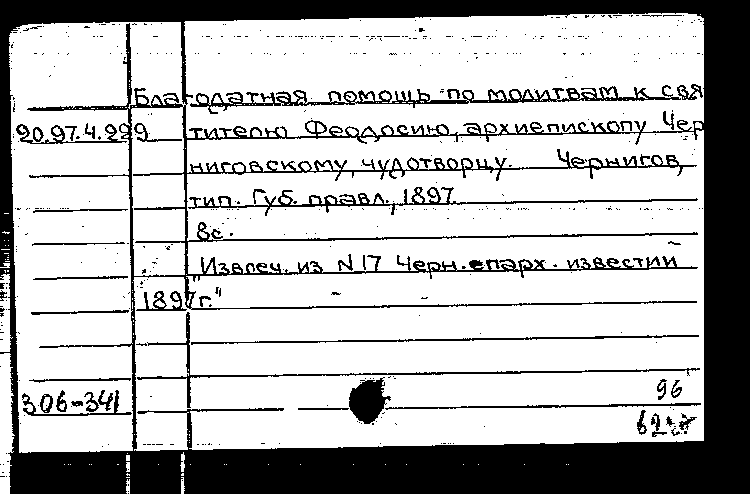 Благодатная помощь по молитвам к свя
20.97.4.299 тителю Феодосию, архиепископу Чер
ниговскому, чудотворцу. Чернигов,
тип. Губ. правл., 1897
8с.
"Извлеч. из N 17 Черн. епарх. известий
1897г."
306-341 96